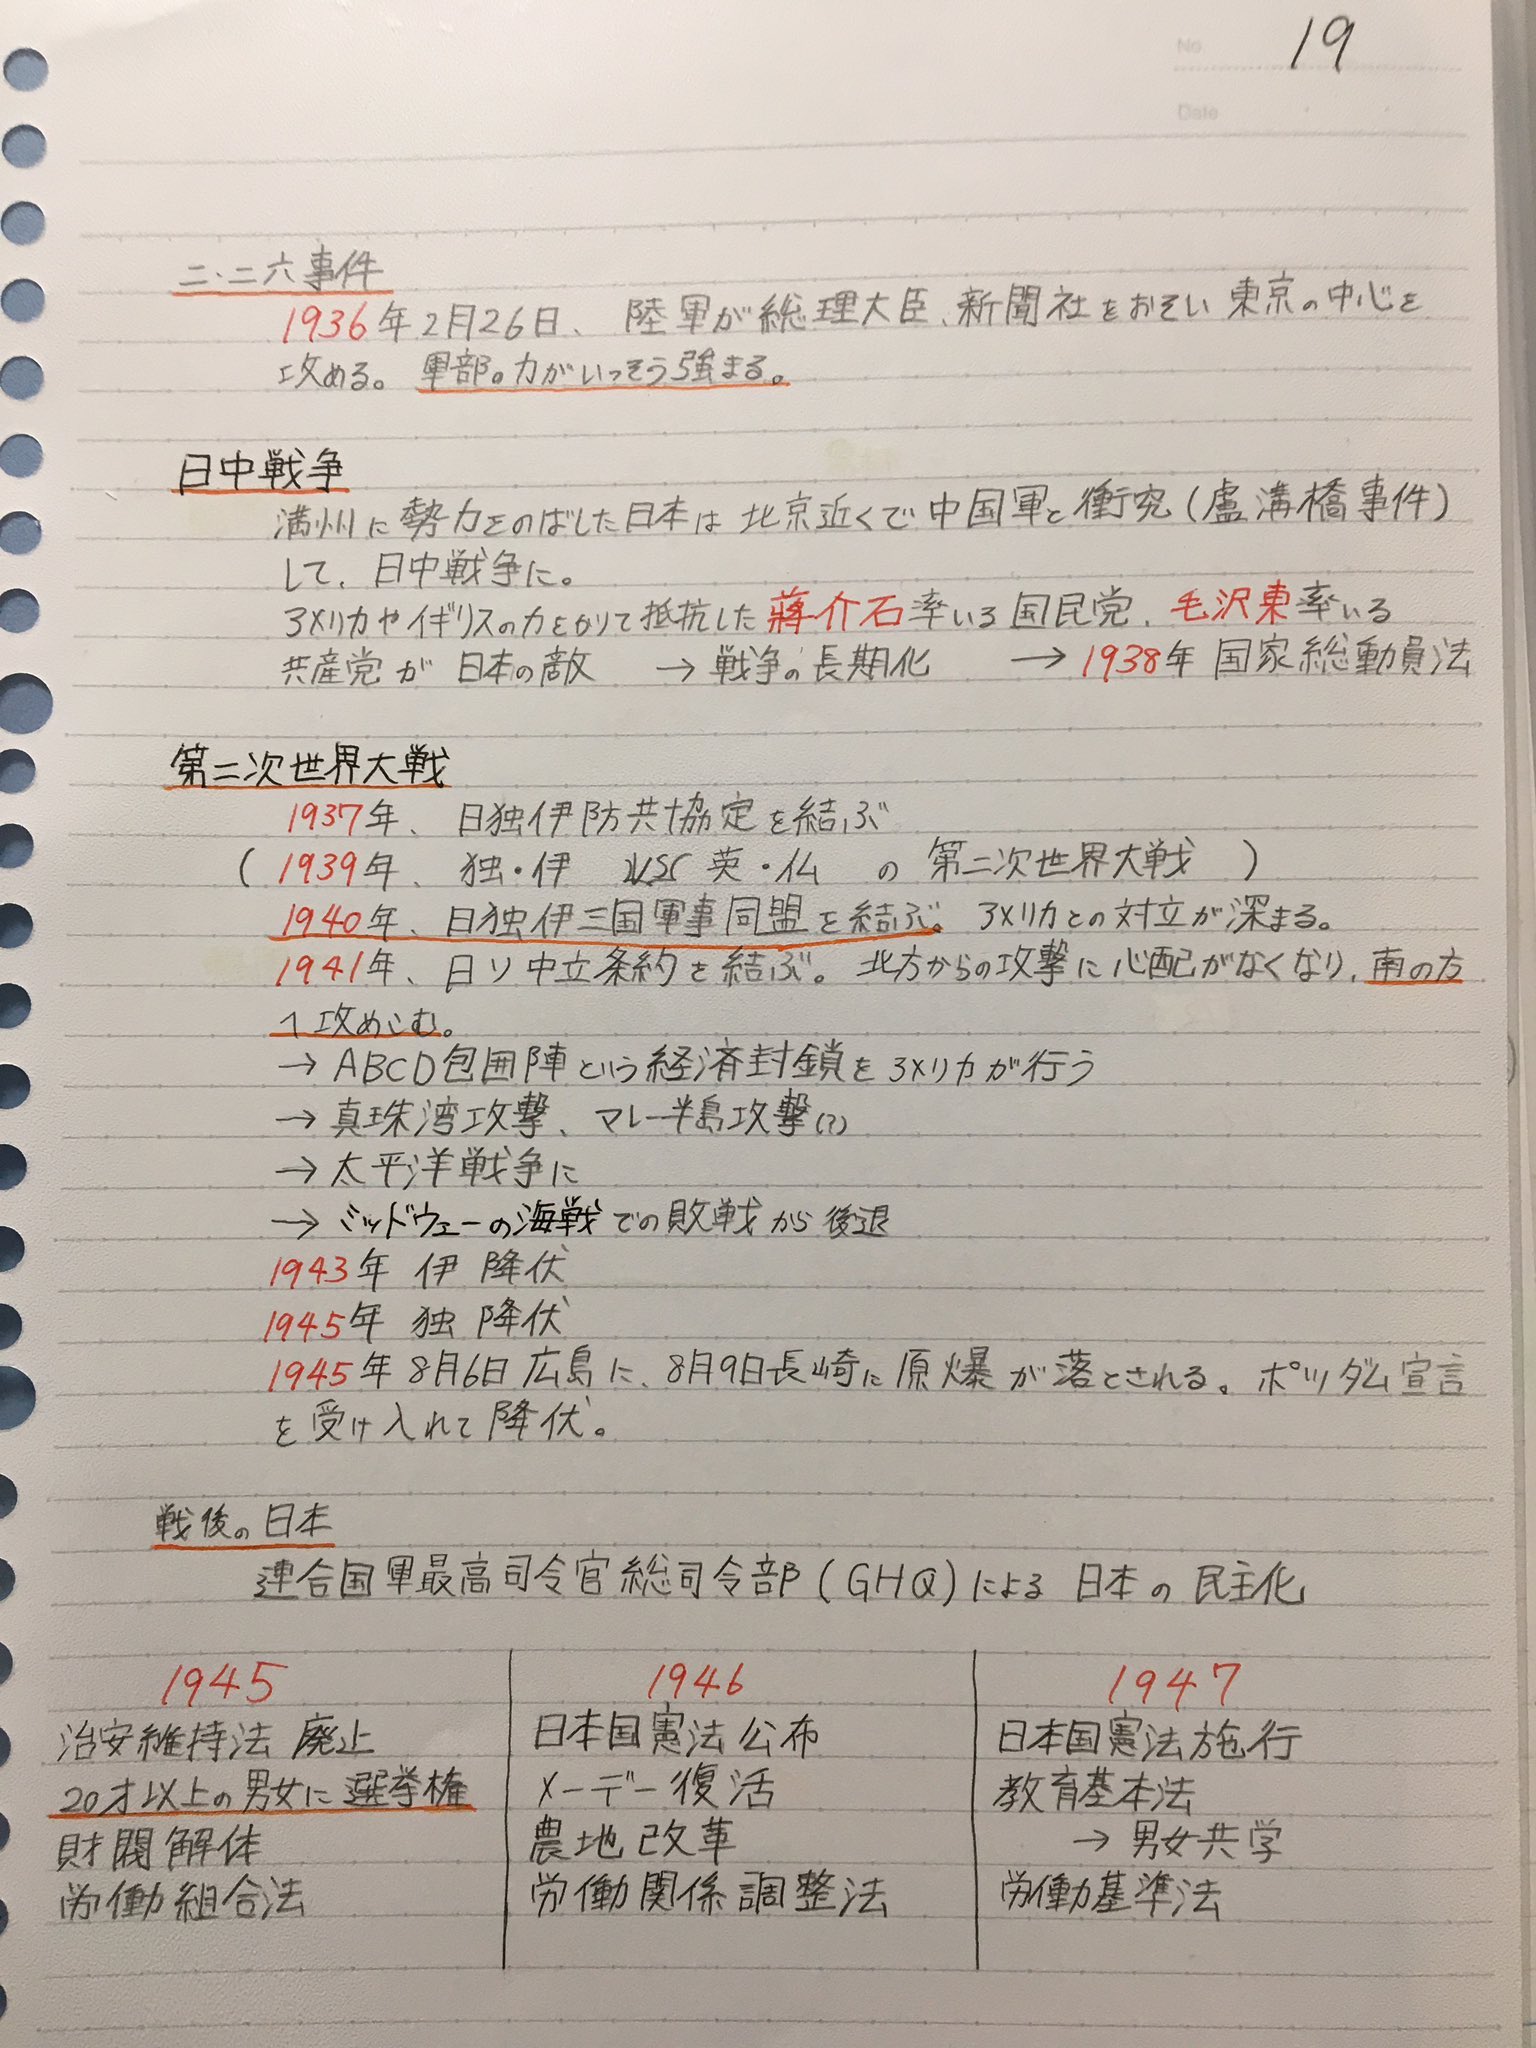 No. 19
Date
二・二六事件
1936年2月26日、陸軍が総理大臣、新聞社をおそい東京の中心を
攻める。軍部の力がいっそう強まる。
日中戦争
満州に勢力をのばした日本は北京近くで中国軍と衝突(盧溝橋事件)
して、日中戦争に。
アメリカやイギリスの力をかりて抵抗した蔣介石率いる国民党、毛沢東率いる
共産党が日本の敵 → 戦争の長期化 → 1938年 国家総動員法
第二次世界大戦
1937年、日独伊防共協定を結ぶ
( 1939年、独・伊 VS 英・仏 の 第二次世界大戦 )
1940年、日独伊三国軍事同盟を結ぶ。アメリカとの対立が深まる。
1941年、日ソ中立条約を結ぶ。北方からの攻撃に心配がなくなり、南の方
へ攻めこむ。
→ ABCD包囲陣という経済封鎖をアメリカが行う
→ 真珠湾攻撃、マレー半島攻撃(?)
→ 太平洋戦争に
→ ミッドウェーの海戦での敗戦から後退
1943年 伊 降伏
1945年 独 降伏
1945年8月6日広島に、8月9日長崎に原爆が落とされる。ポツダム宣言
を受け入れて降伏。
戦後の日本
連合国軍最高司令官総司令部(GHQ)による 日本の民主化
1945
治安維持法 廃止
20才以上の男女に選挙権
財閥解体
労働組合法
1946
日本国憲法公布
メーデー復活
農地改革
労働関係調整法
1947
日本国憲法施行
教育基本法
→ 男女共学
労働基準法